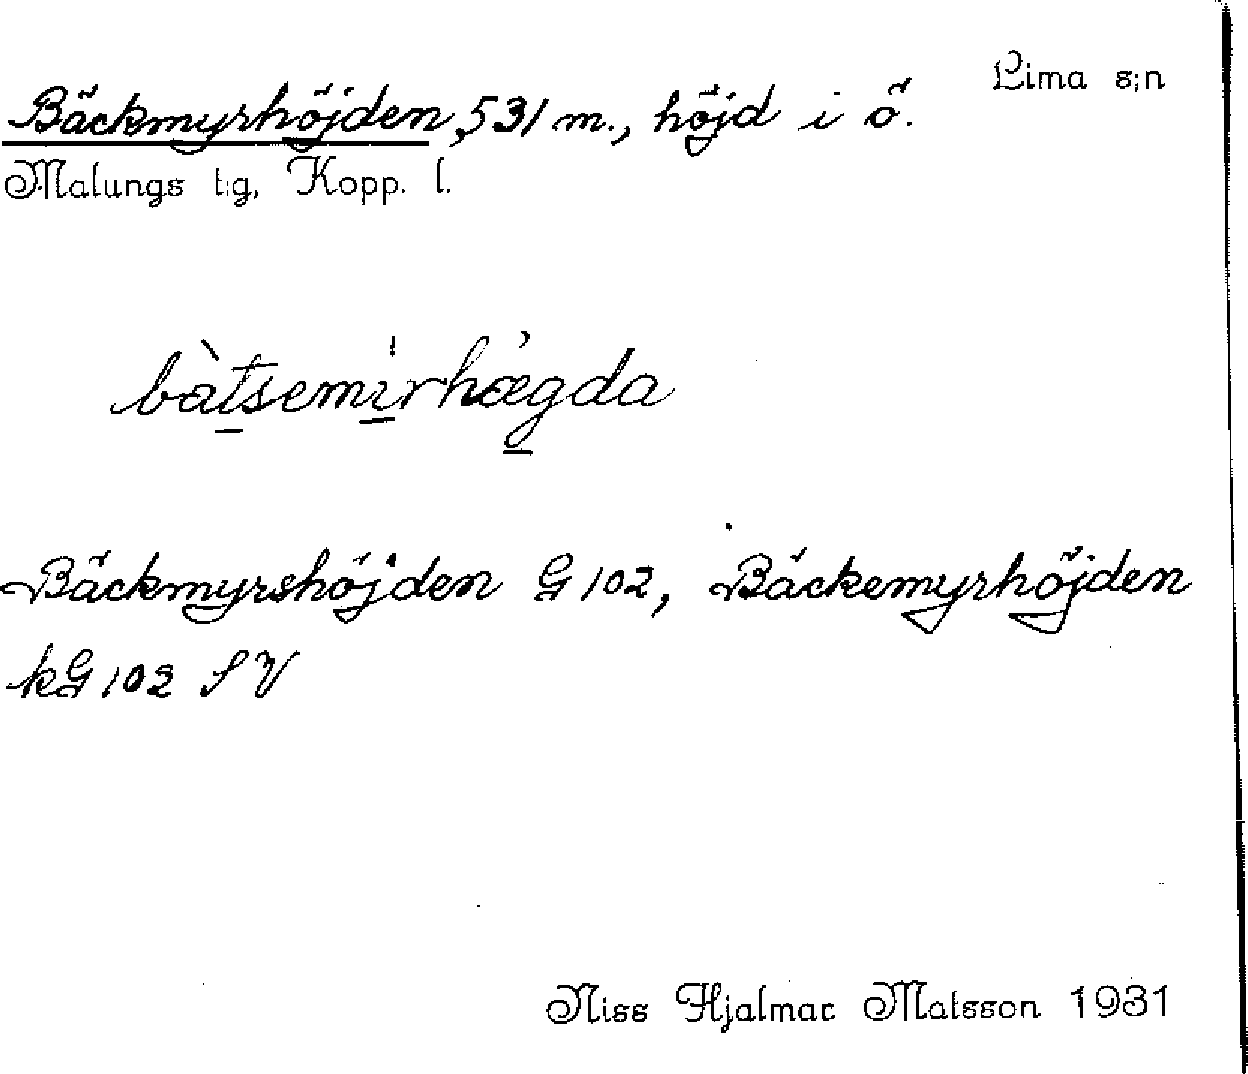 Lima s:n
Bäckmyrhöjden, 531 m., höjd i ö.
Malungs t:g, Kopp. l.
bàtsemi̠rhœgda
Bäckmyrshöjden G 102, Bäckemyrhöjden
kG 102 SV
Niss Hjalmar Matsson 1931